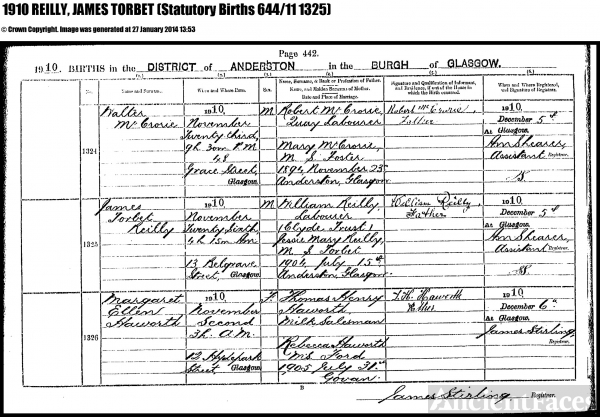 1910 REILLY, JAMES TORBET (Statutory Births 644/11 1325)
© Crown Copyright. Image was generated at 27 January 2014 13:53
Page 442.
1910 BIRTHS in the DISTRICT of ANDERSTON in the BURGH of GLASGOW.
No.
Name and Surname.
When and Where Born.
Sex.
Name, Surname, & Rank or Profession of Father.
Name, and Maiden Surname of Mother.
Date and Place of Marriage.
Signature and Qualification of Informant, and Residence, if out of the House in which the Birth occurred.
When and Where Registered, and Signature of Registrar.
1324
Walter
McCrorie
1910,
November
Twenty third,
9h 30m P.M.
48
Grace Street,
Glasgow.
M
Robert McCrorie,
Quay Labourer
Mary McCrorie,
M.S. Foster
1894, November 23
Anderston, Glasgow.
Robert McCrorie,
Father
1910,
December 5th
At Glasgow.
Wm Shearer,
Assistant Registrar.
1325
James
Torbet
Reilly
1910,
November
Twenty Sixth,
4h 15m A.M.
13 Belgrave
Street, Glasgow
M
William Reilly,
Labourer
(Clyde Trust)
Jessie Mary Reilly,
M.S. Torbet
1904, July 15th
Anderston, Glasgow.
William Reilly,
Father
1910,
December 5th
At Glasgow.
Wm Shearer,
Assistant Registrar.
1326
Margaret
Ellen
Haworth
1910,
November
Second
3h. A.M.
13 Hydepark
Street Glasgow
F
Thomas Henry
Haworth
Milk Salesman
Rebecca Haworth
M.S. Ford
1905 July 31st
Govan.
T. H. Haworth
Father
1910,
December 6th
At Glasgow.
James Stirling,
Registrar.
B
James Stirling, Registrar.
Ancientfaces